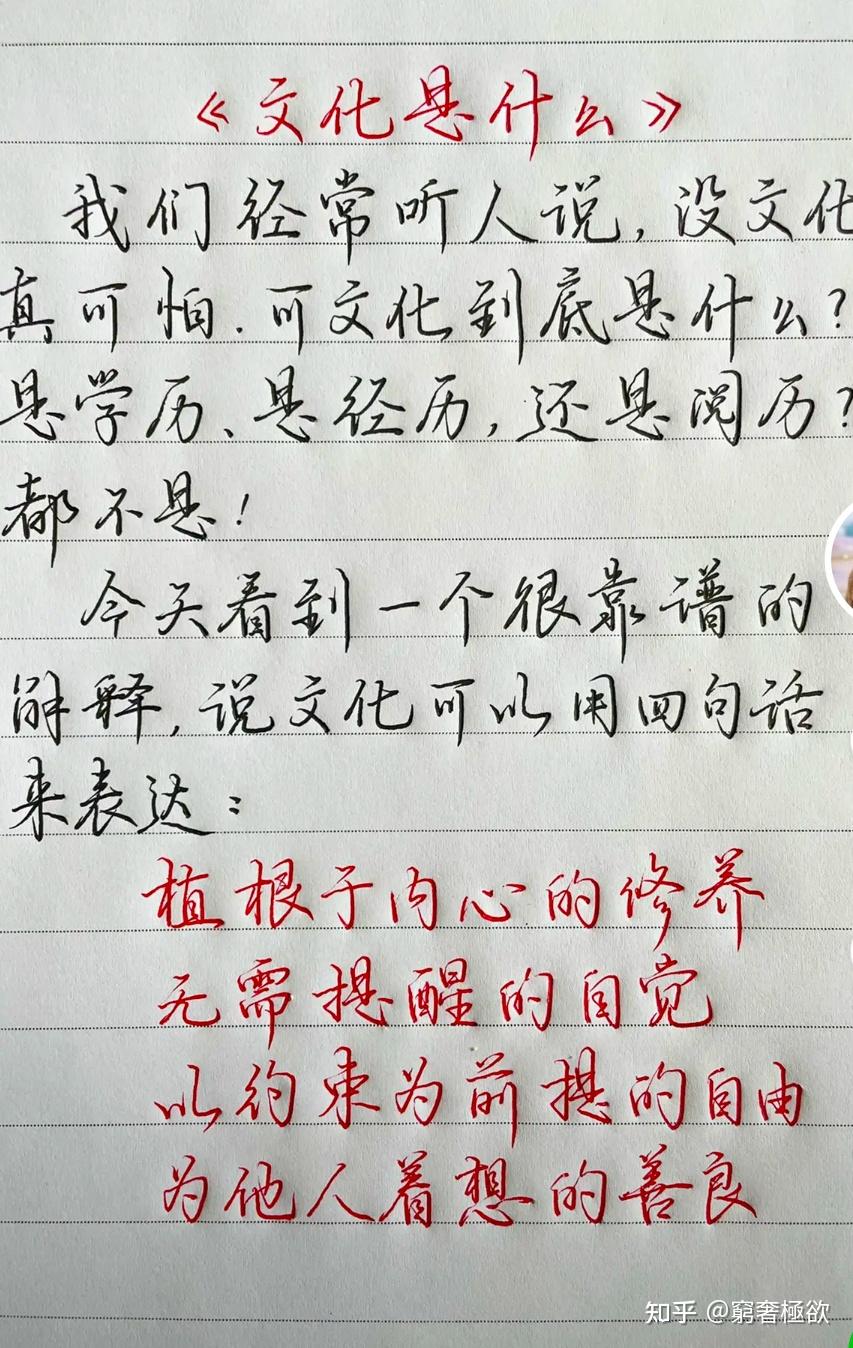 《文化是什么》
我们经常听人说,没文化
真可怕.可文化到底是什么?
是学历、是经历,还是阅历?
都不是!
今天看到一个很靠谱的
解释,说文化可以用四句话
来表达:
植根于内心的修养
无需提醒的自觉
以约束为前提的自由
为他人着想的善良
知乎 @窮奢極欲